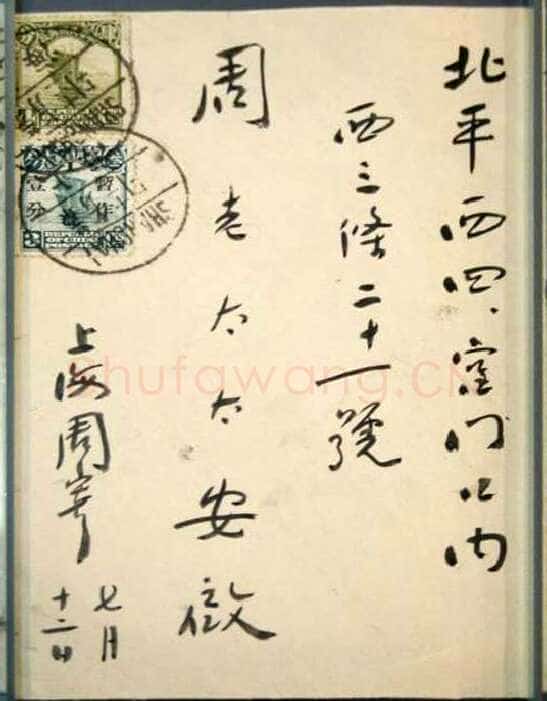 北平西四、宫门口内
西三條二十一號
周老太太安啟
上海周寄
七月
十二日
暫作
壹分
SHANGHAI
Shufawang.CN